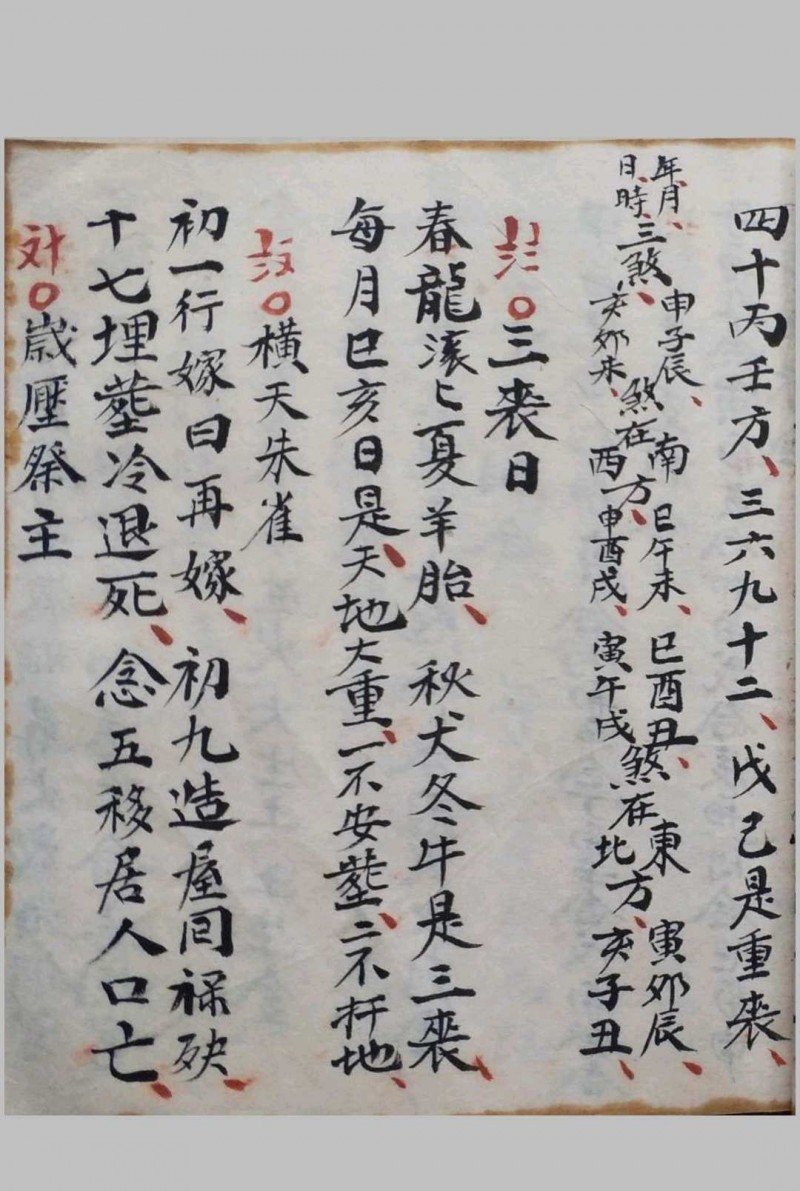 四十丙壬方、三六九十二、戊己是重喪、
年月、日時三煞、申子辰、亥卯未、煞在南西方、巳午未、申酉戌、巳酉丑、寅午戌煞在東北方、寅卯辰、亥子丑、
〇三喪日
春龍滾〻夏羊胎、秋犬冬牛是三喪、
每月巳亥日是、天地大重、一不安葬、二不扦地、
〇橫天朱雀
初一行嫁曰再嫁、初九造屋回祿殃、
十七埋葬冷退死、念五移居人口亡、
〇歲壓祭主